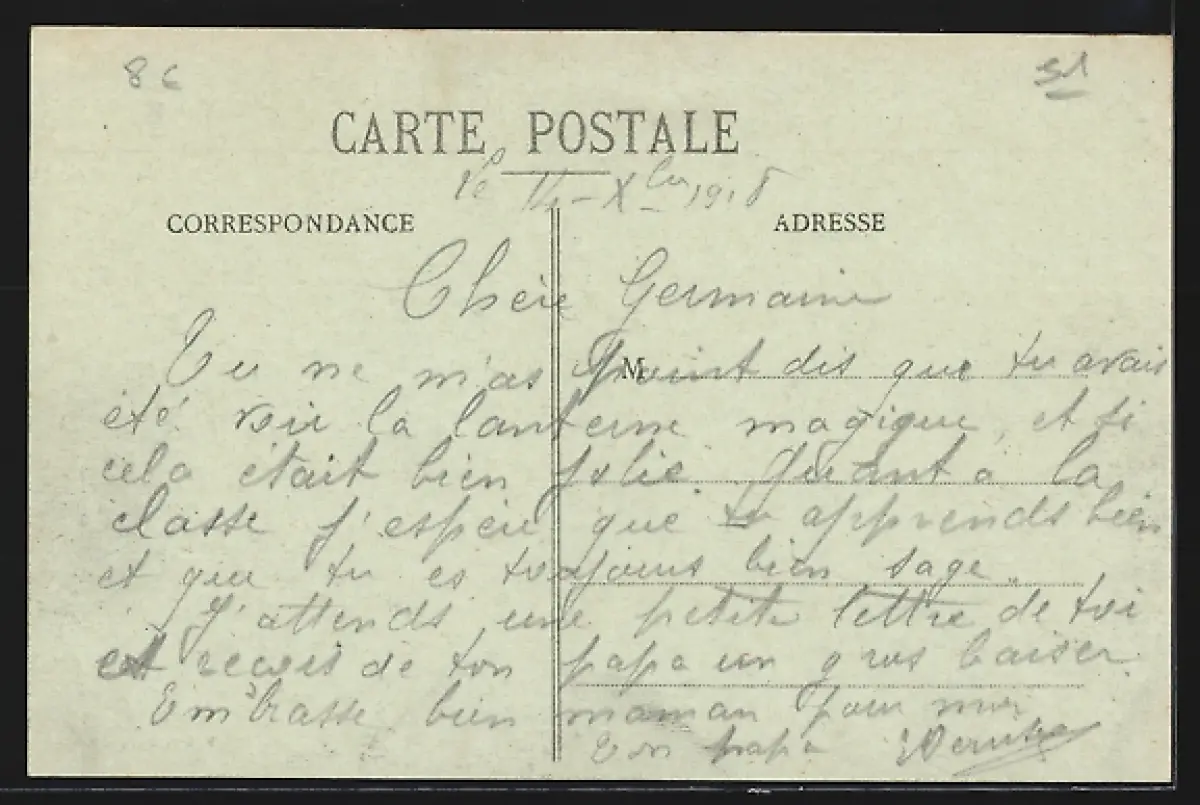 86
CARTE POSTALE
Le 14-Xbre 1918
CORRESPONDANCE
ADRESSE
Chère Germaine
M
Tu ne m'as point dis que tu avais
été voir la lanterne magique, et si
cela était bien jolie. Quant à la
classe j'espère que tu apprends bien
et que tu es toujours bien sage.
J'attends une petite lettre de toi
et reçois de ton papa un gros baiser.
Embrasse bien maman pour moi
Ton papa